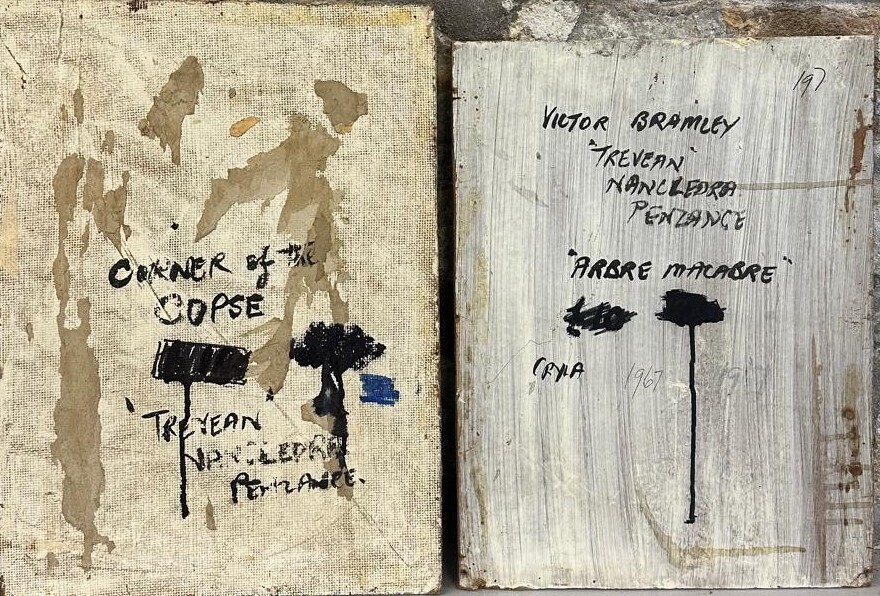 CORNER of the
COPSE
'TREVEAN'
NANCLEDRA
PENZANCE.
197
VICTOR BRAMLEY
"TREVEAN"
NANCLEDRA
PENZANCE
"ARBRE MACABRE"
CRYLA
1967